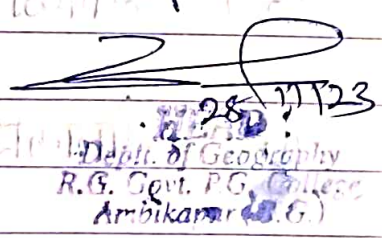 28/11/23
HEAD
Deptt. of Geography
R.G. Govt. P.G. College
Ambikapur (C.G.)